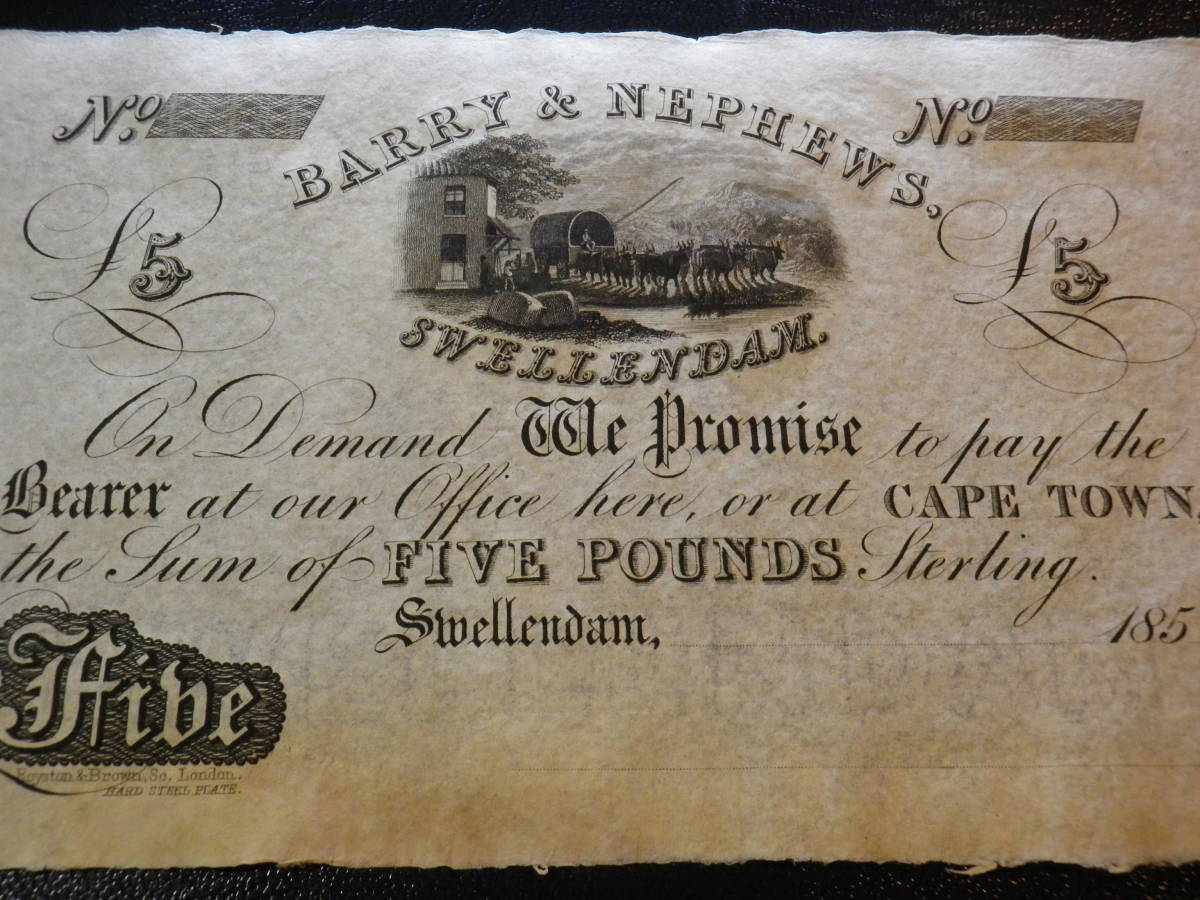 No. No.
BARRY & NEPHEWS,
£5 £5
SWELLENDAM.
On Demand We Promise to pay the
Bearer at our Office here, or at CAPE TOWN,
the Sum of FIVE POUNDS Sterling.
Swellendam, 185
Five
Royston & Brown, Sc. London.
HARD STEEL PLATE.